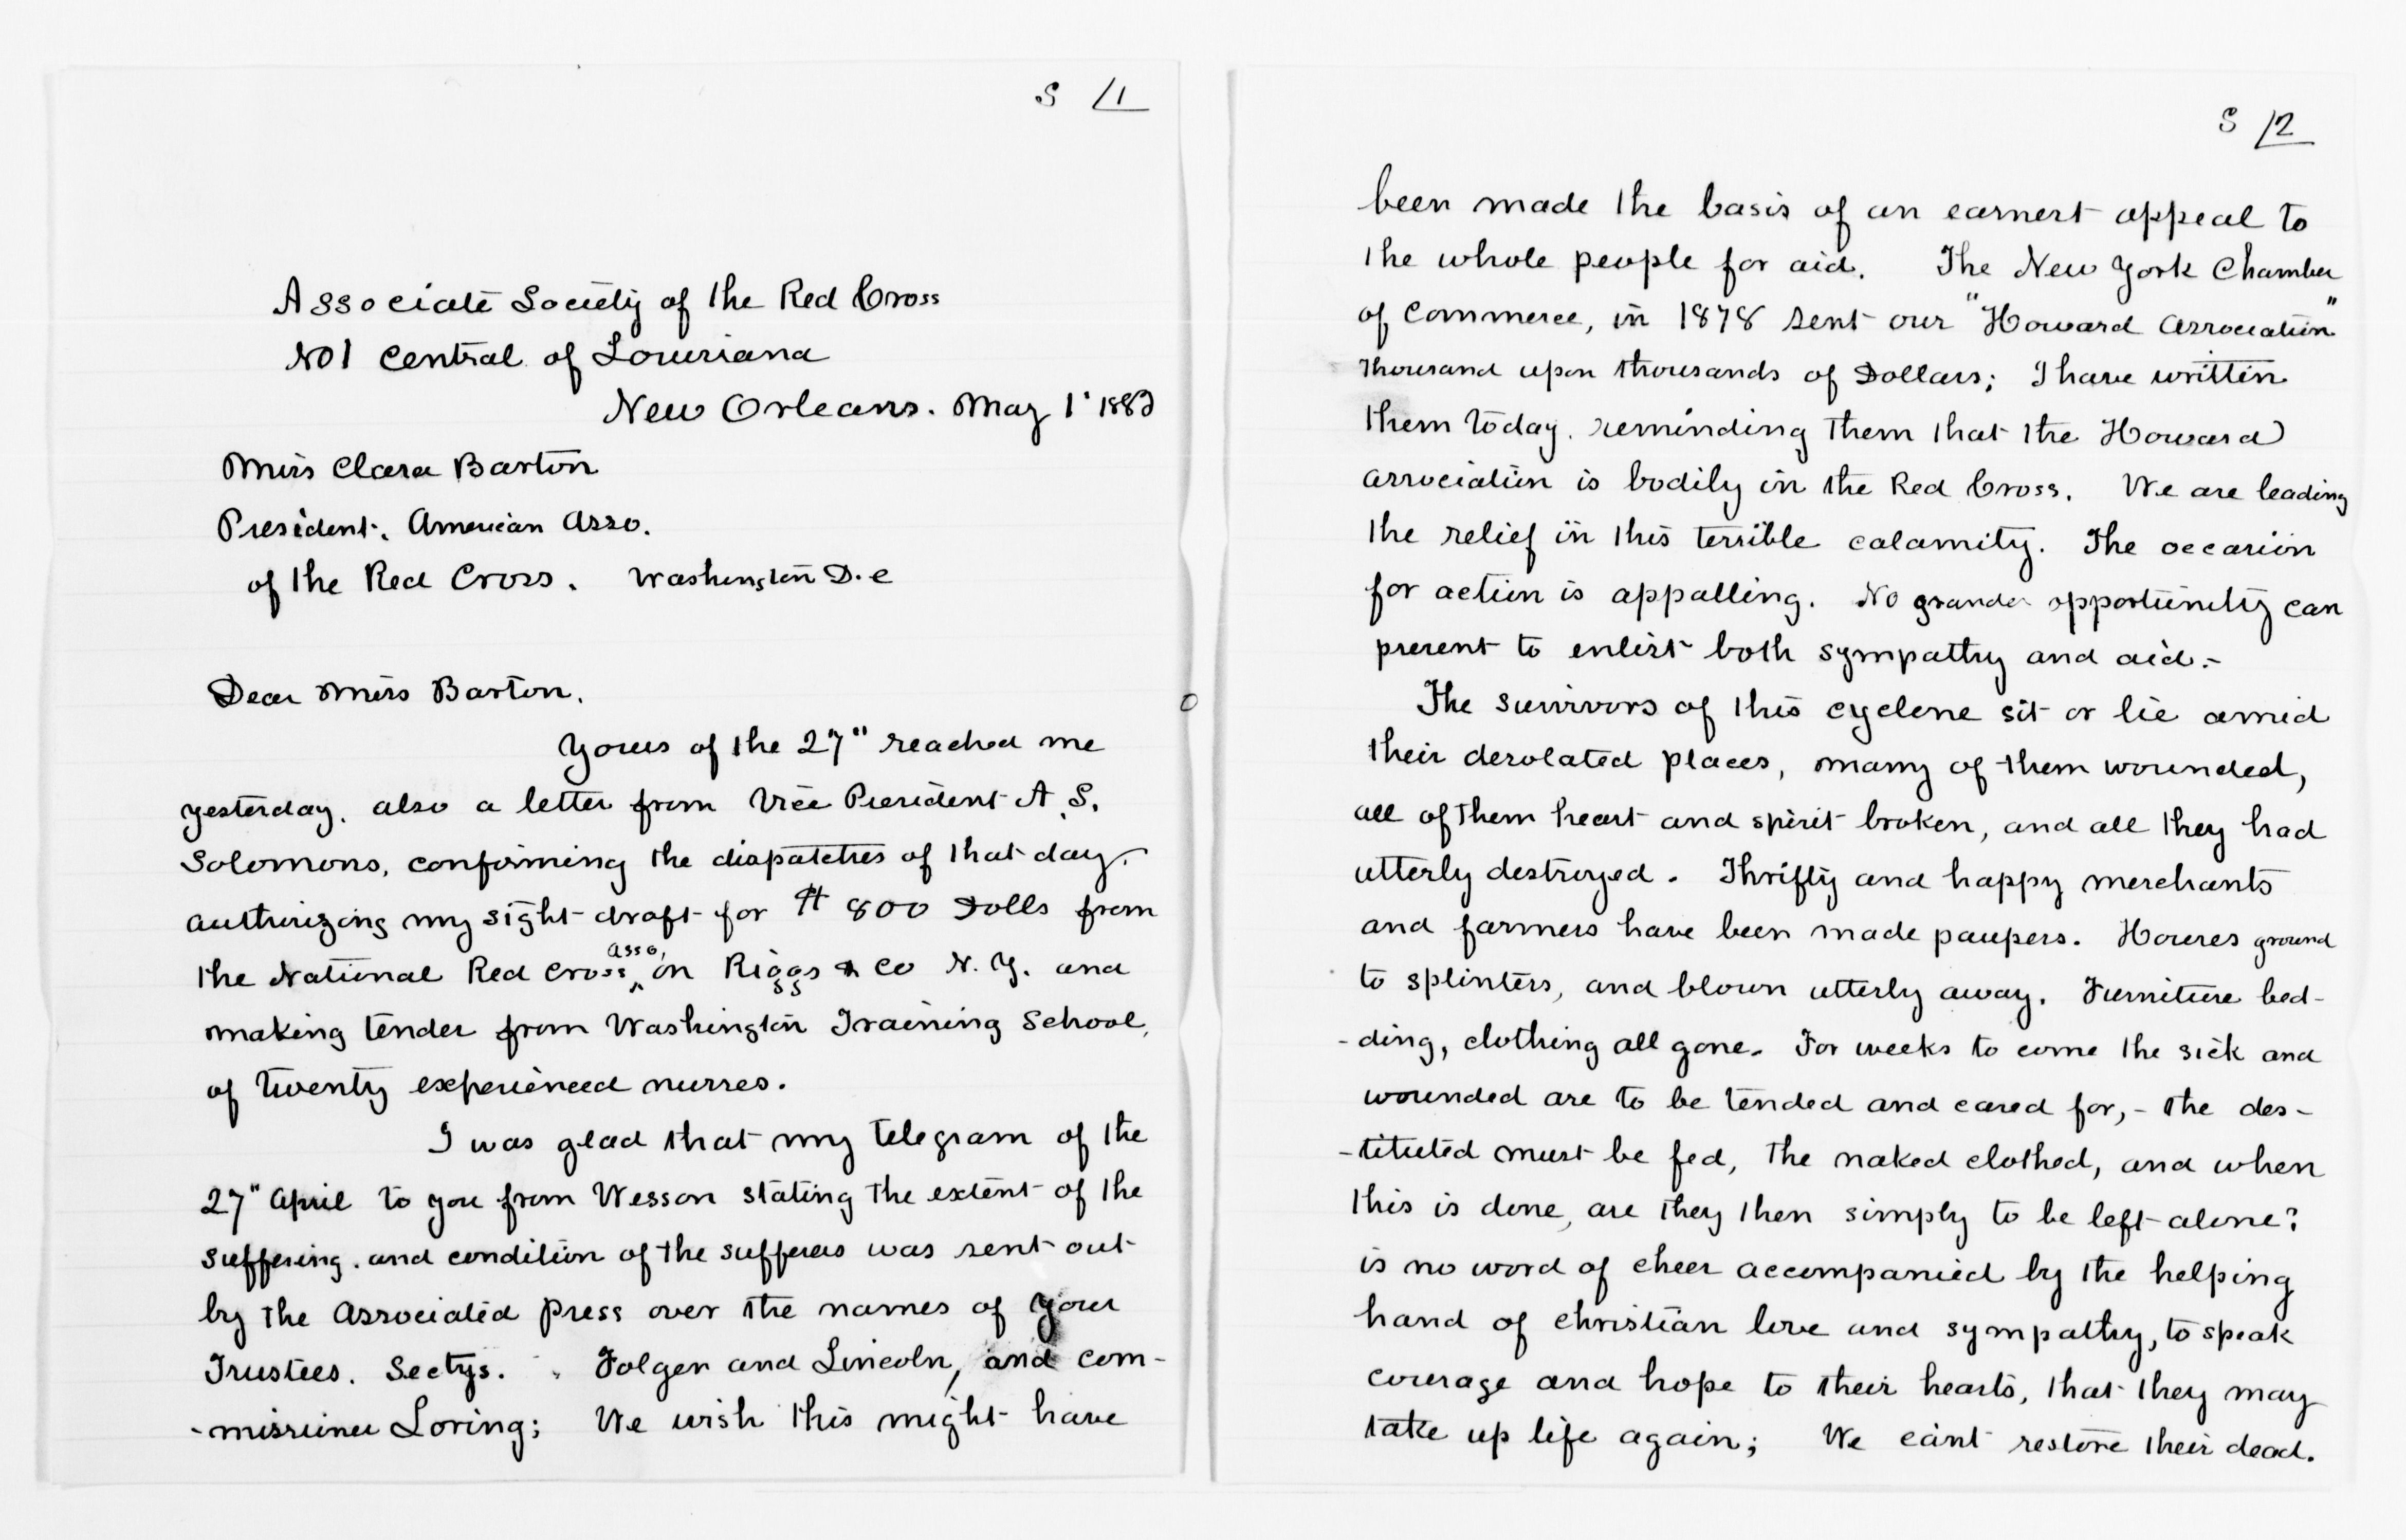 S /1
Associate Society of the Red Cross
No 1 Central of Louisiana
New Orleans. May 1" 1883
Miss Clara Barton
President. American Asso.
of the Red Cross. Washington D.C
Dear Miss Barton.
Yours of the 27" reached me
yesterday. also a letter from Vice President A. S.
Solomons, confirming the dispatches of that day.
authorizing my sight draft for $ 800 Dolls from
the National Red Cross asso, on Riggs & Co N. Y. and
making tender from Washington Training School,
of twenty experienced nurses.
I was glad that my telegram of the
27" April to you from Wesson stating the extent of the
suffering. and condition of the sufferers was sent out
by the Associated Press over the names of your
Trustees. Sectys. Folger and Lincoln, and com-
-missioner Loring; We wish this might have
S /2
been made the basis of an earnest appeal to
the whole people for aid. The New York Chamber
of Commerce, in 1878 sent our "Howard Association"
Thousand upon thousands of Dollars; I have written
them today. reminding them that the Howard
association is bodily in the Red Cross. We are leading
the relief in this terrible calamity. The occasion
for action is appalling. No grander opportunity can
present to enlist both sympathy and aid.-
The survivors of this cyclone sit or lie amid
their desolated places, many of them wounded,
all of them heart and spirit broken, and all they had
utterly destroyed. Thrifty and happy merchants
and farmers have been made paupers. Houses ground
to splinters, and blown utterly away. Furniture bed-
-ding, clothing all gone. For weeks to come the sick and
wounded are to be tended and cared for,- the des-
-tituted must be fed, the naked clothed, and when
this is done, are they then simply to be left alone?
is no word of cheer accompanied by the helping
hand of christian love and sympathy, to speak
courage and hope to their hearts, that they may
take up life again; We can't restore their dead.